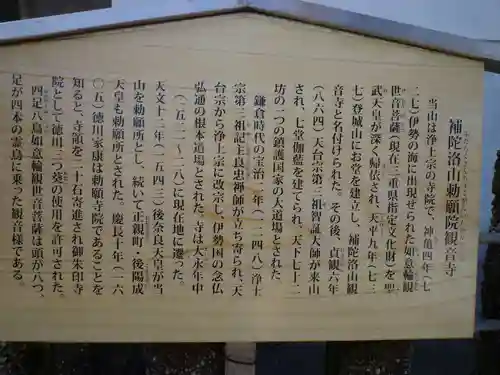 補陀洛山勅願院観音寺
当山は浄土宗の寺院で、神亀四年（七
二七）伊勢の海に出現せられた如意輪観
世音菩薩（現在三重県指定文化財）を聖
武天皇が深く帰依され、天平九年（七三
七）登城山にお堂を建立し、補陀洛山観
音寺と名付けられた。その後、貞観六年
（八六四）天台宗第三祖智証大師が来山
され、七堂伽藍を建てられ、天下七十二
坊の一つの鎮護国家の大道場とされた
鎌倉時代の宝治二年（一二四八）浄土
宗第三祖記主良忠禅師が立ち寄られ、天
台宗から浄土宗に改宗し、伊勢国の念仏
弘通の根本道場とされた。寺は大永年中
（一五二一～二八）に現在地に遷った。
天文十二年（一五四三）後奈良天皇が当
山を勅願所とし、続いて正親町・後陽成
天皇も勅願所とされた。慶長十年（一六
〇五）徳川家康は勅願寺院であることを
知ると、寺領を二十石寄進され御朱印寺
院として徳川三つ葵の使用を許可された。
四足八鳥如意輪観世音菩薩は頭が八つ、
足が四本の霊鳥に乗った観音様である。